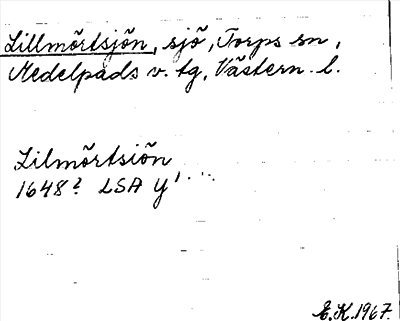 Lillmörtsjön, sjö, Torps sn,
Medelpads v. tg, Västern. l.
Lilmörtsiön
1648? LSA Y¹
E.K. 1967.